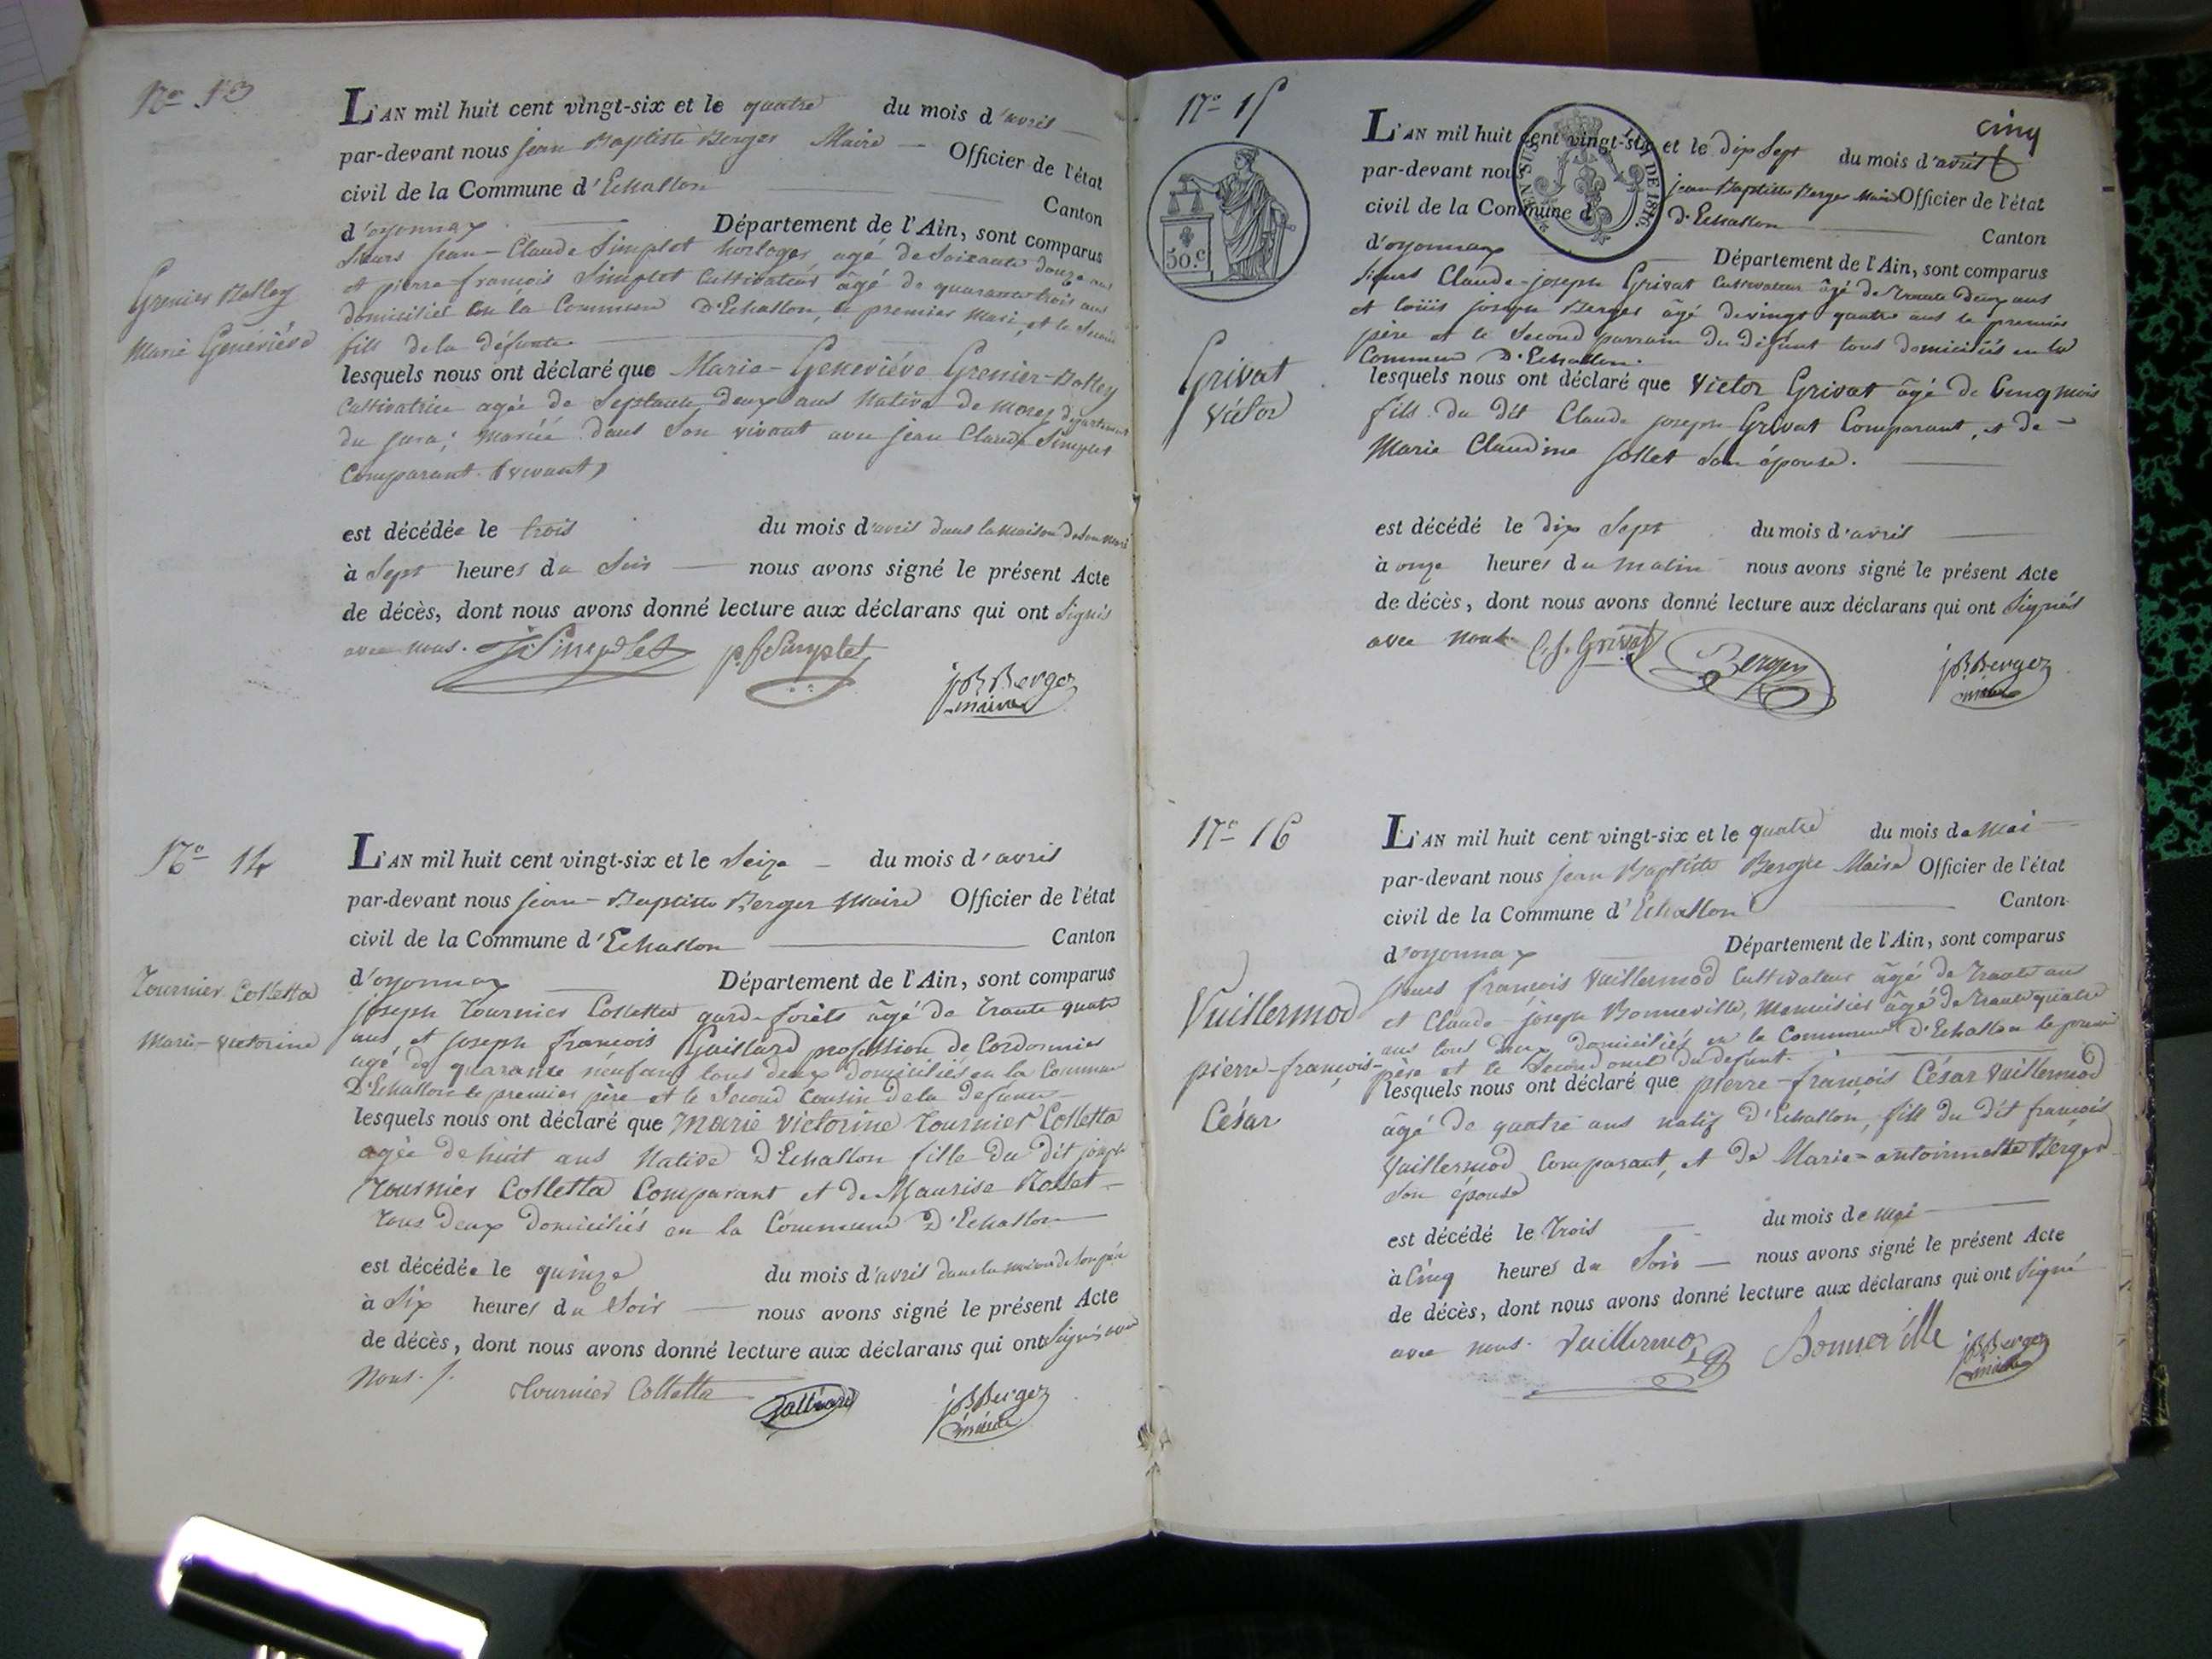 No 13
Grenier Balley
Marie Geneviève
L'AN mil huit cent vingt-six et le quatre du mois d'avril
par-devant nous jean Baptiste Berger Maire Officier de l'état
civil de la Commune d'Echallon Canton
d'oyonnax Département de l'Ain, sont comparus
Sieurs jean-Claude Simplet horloger, agé de Soixante douze ans
et pierre-françois Simplet Cultivateur âgé de quarante trois ans
domiciliés en la Commune D'Echallon, le premier Mari, et le Second
fils de la défunte
lesquels nous ont déclaré que Marie-Geneviéve Grenier-Balley
Cultivatrice agée de Septante deux ans Native de Morez département
du jura; mariée dans Son vivant avec jean Claude Simplet
Comparant (vivant)
est décédée le trois du mois d'avril dans la maison de son mari
à Sept heures du Soir nous avons signé le présent Acte
de décès, dont nous avons donné lecture aux déclarans qui ont Signés
avec nous. Simplet p.f Simplet
jB Berger
maire
No 14
Tournier Colletta
Marie-victorine
L'AN mil huit cent vingt-six et le Seize du mois d'avril
par-devant nous jean-Baptiste Berger Maire Officier de l'état
civil de la Commune d'Echallon Canton
d'oyonnax Département de l'Ain, sont comparus
joseph Tournier Colletta garde-forêts âgé de Trante quatre
ans, et joseph françois Gaillard profession de Cordonnier
agé de quarante neuf ans tous deux domiciliés en la Commune
D'Echallon le premier père et le Second Cousin de la defunte
lesquels nous ont déclaré que Marie victorine Tournier Colletta
agée de huit ans Native D'Echallon fille du dit joseph
Tournier Colletta Comparant et de Maurise Rosset
Tous deux domiciliés en la Commune D'Echallon
est décédée le quinze du mois d'avril dans la maison de Son père
à Six heures du Soir nous avons signé le présent Acte
de décès, dont nous avons donné lecture aux déclarans qui ont Signés avec
Nous. /. Tournier Colletta jB Berger
maire
No 15
50.c
cinq
Grivat
Victor
L'AN mil huit cent vingt-six et le dix Sept du mois d'avril
par-devant nous jean Baptiste Berger Maire Officier de l'état
civil de la Commune d'Echallon Canton
LOI DE 1816.
d'oyonnax Département de l'Ain, sont comparus
Sieurs Claude-joseph Grivat Cultivateur âgé de Trante deux ans
et loüis joseph Berger âgé de vingt quatre ans le premier
père et le Second parrain du défunt tous domiciliés en la
Commune D'Echallon.
lesquels nous ont déclaré que Victor Grivat âgé de Cinq mois
fils du dit Claude joseph Grivat Comparant, et de
Marie Claudine Jollet Son épouse.
est décédé le dix Sept du mois d'avril
à onze heures du matin nous avons signé le présent Acte
de décès, dont nous avons donné lecture aux déclarans qui ont Signés
avec nous C. J. Grivat Berger jB Berger
maire
No 16
Vuillermod
pierre-françois-
César
L'AN mil huit cent vingt-six et le quatre du mois de Mai
par-devant nous jean Baptiste Berger Maire Officier de l'état
civil de la Commune d'Echallon Canton
d'oyonnax Département de l'Ain, sont comparus
Sieurs françois Vuillermod Cultivateur âgé de Trante ans
et Claude-joseph Bonneville, Menuisier âgé de Trante quatre
ans tous deux domiciliés en la Commune D'Echallon le premier
père et le Second oncle du défunt.
lesquels nous ont déclaré que pierre-françois César Vuillermod
âgé de quatre ans natif D'Echallon, fils du dit françois
Vuillermod Comparant, et de Marie-antoinette Berger
Son épouse
est décédé le Trois du mois de Mai
à Cinq heures du Soir nous avons signé le présent Acte
de décès, dont nous avons donné lecture aux déclarans qui ont Signé
avec nous. Vuillermoz Bonneville jB Berger
maire